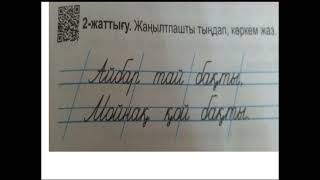 2-жаттығу. Жаңылтпашты тыңдап, көркем жаз.
Айбар тай бақты,
Мойнақ қой бақты.